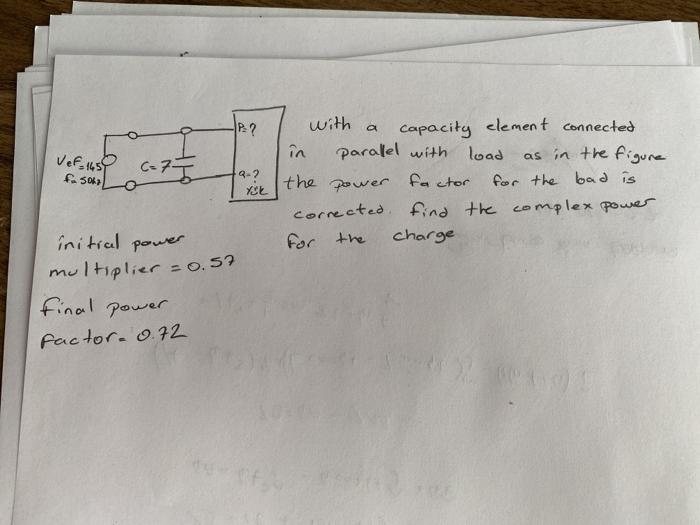 With a capacity element connected
in parallel with load as in the figure
the power factor for the bad is
corrected. find the complex power
for the charge
P=?
Vef=145
f=50hz
C=7
Q=?
yük
initial power
multiplier = 0.57
final power
factor= 0.72